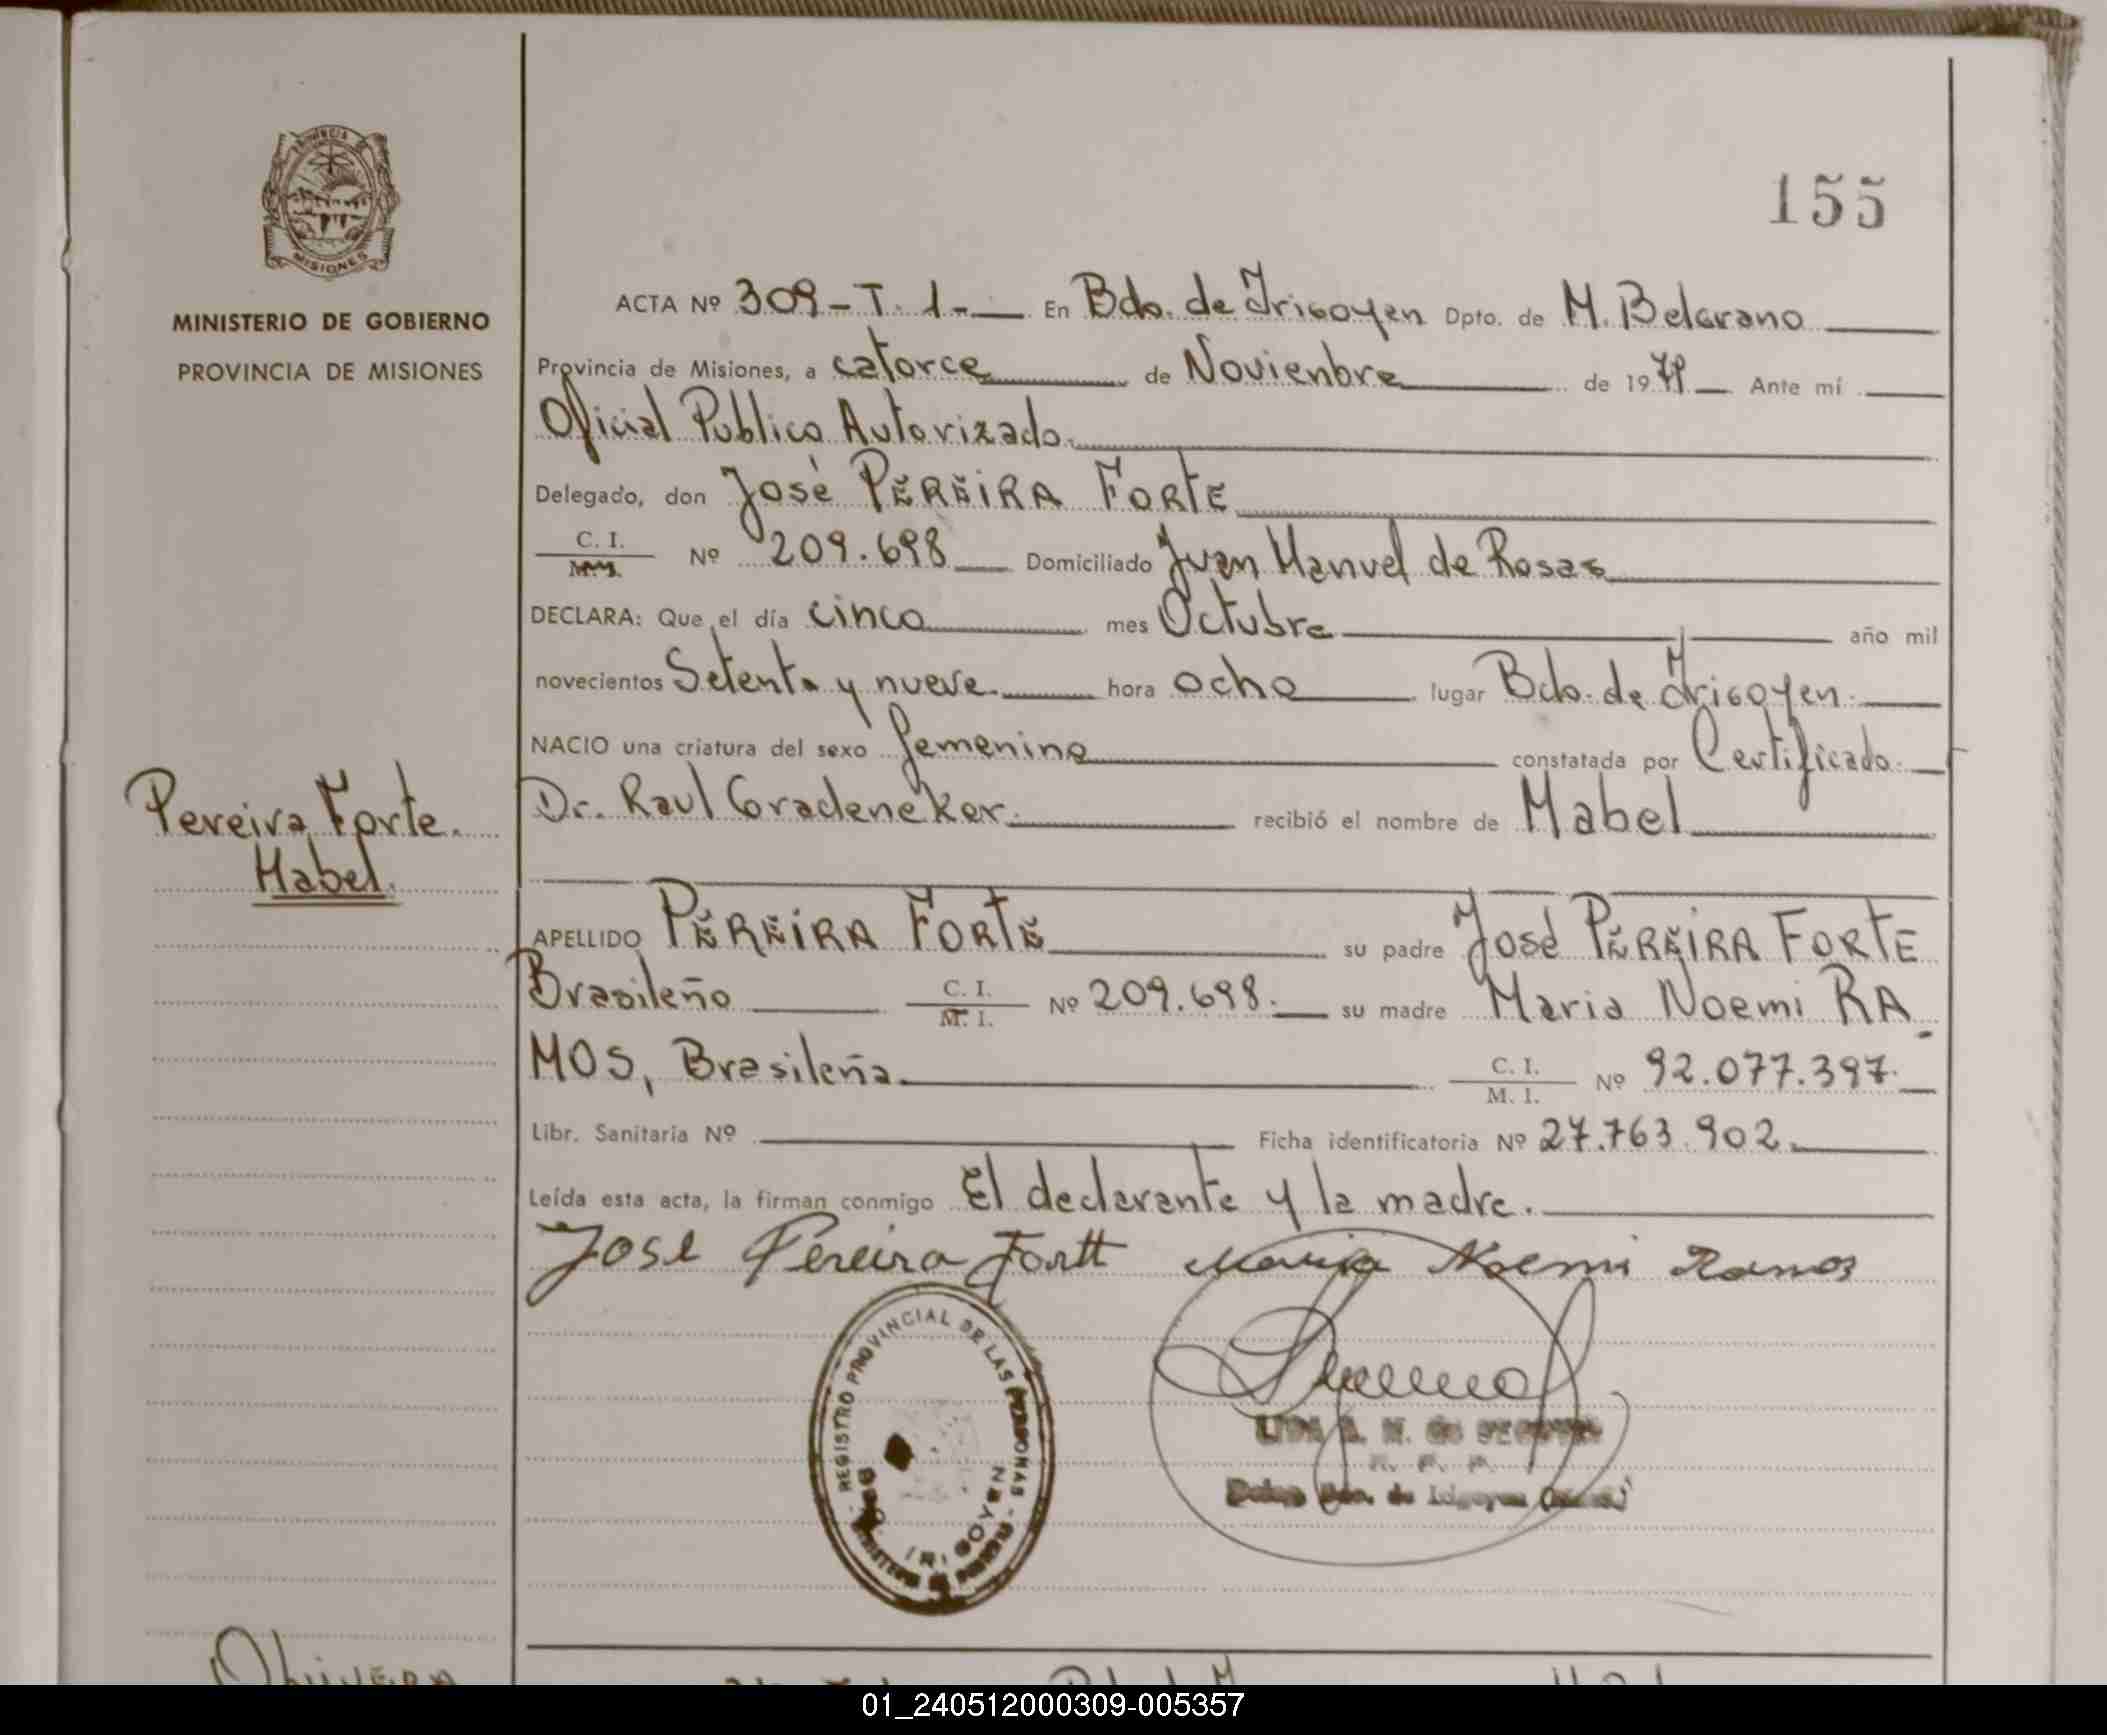 155
PROVINCIA DE
MISIONES
MINISTERIO DE GOBIERNO
PROVINCIA DE MISIONES
ACTA Nº 309-T. 1- En Bdo. de Irigoyen Dpto. de M. Belgrano
Provincia de Misiones, a catorce de Novienbre de 1979 Ante mí
Oficial Publico Autorizado.
Delegado, don José PEREIRA FORTE
C. I. Nº 209.698 Domiciliado Juan Manuel de Rosas
M. I.
DECLARA: Que el día cinco mes Octubre año mil
novecientos Setenta y nueve. hora ocho lugar Bdo. de Irigoyen.
NACIO una criatura del sexo femenino constatada por Certificado.
Dr. Raul Gradeneker. recibió el nombre de Mabel
Pereira Forte.
Mabel.
APELLIDO PEREIRA FORTE su padre José PEREIRA FORTE
Brasileño C. I. Nº 209.698. su madre Maria Noemi RA
M. I.
MOS, Brasileña. C. I. Nº 92.077.397.
M. I.
Libr. Sanitaria Nº Ficha identificatoria Nº 27.763.902.
Leída esta acta, la firman conmigo El declarante y la madre.
Jose Pereira Fortt Maria Noemi Ramos
REGISTRO PROVINCIAL DE LAS PERSONAS
BDO. IRIGOYEN
01_240512000309-005357